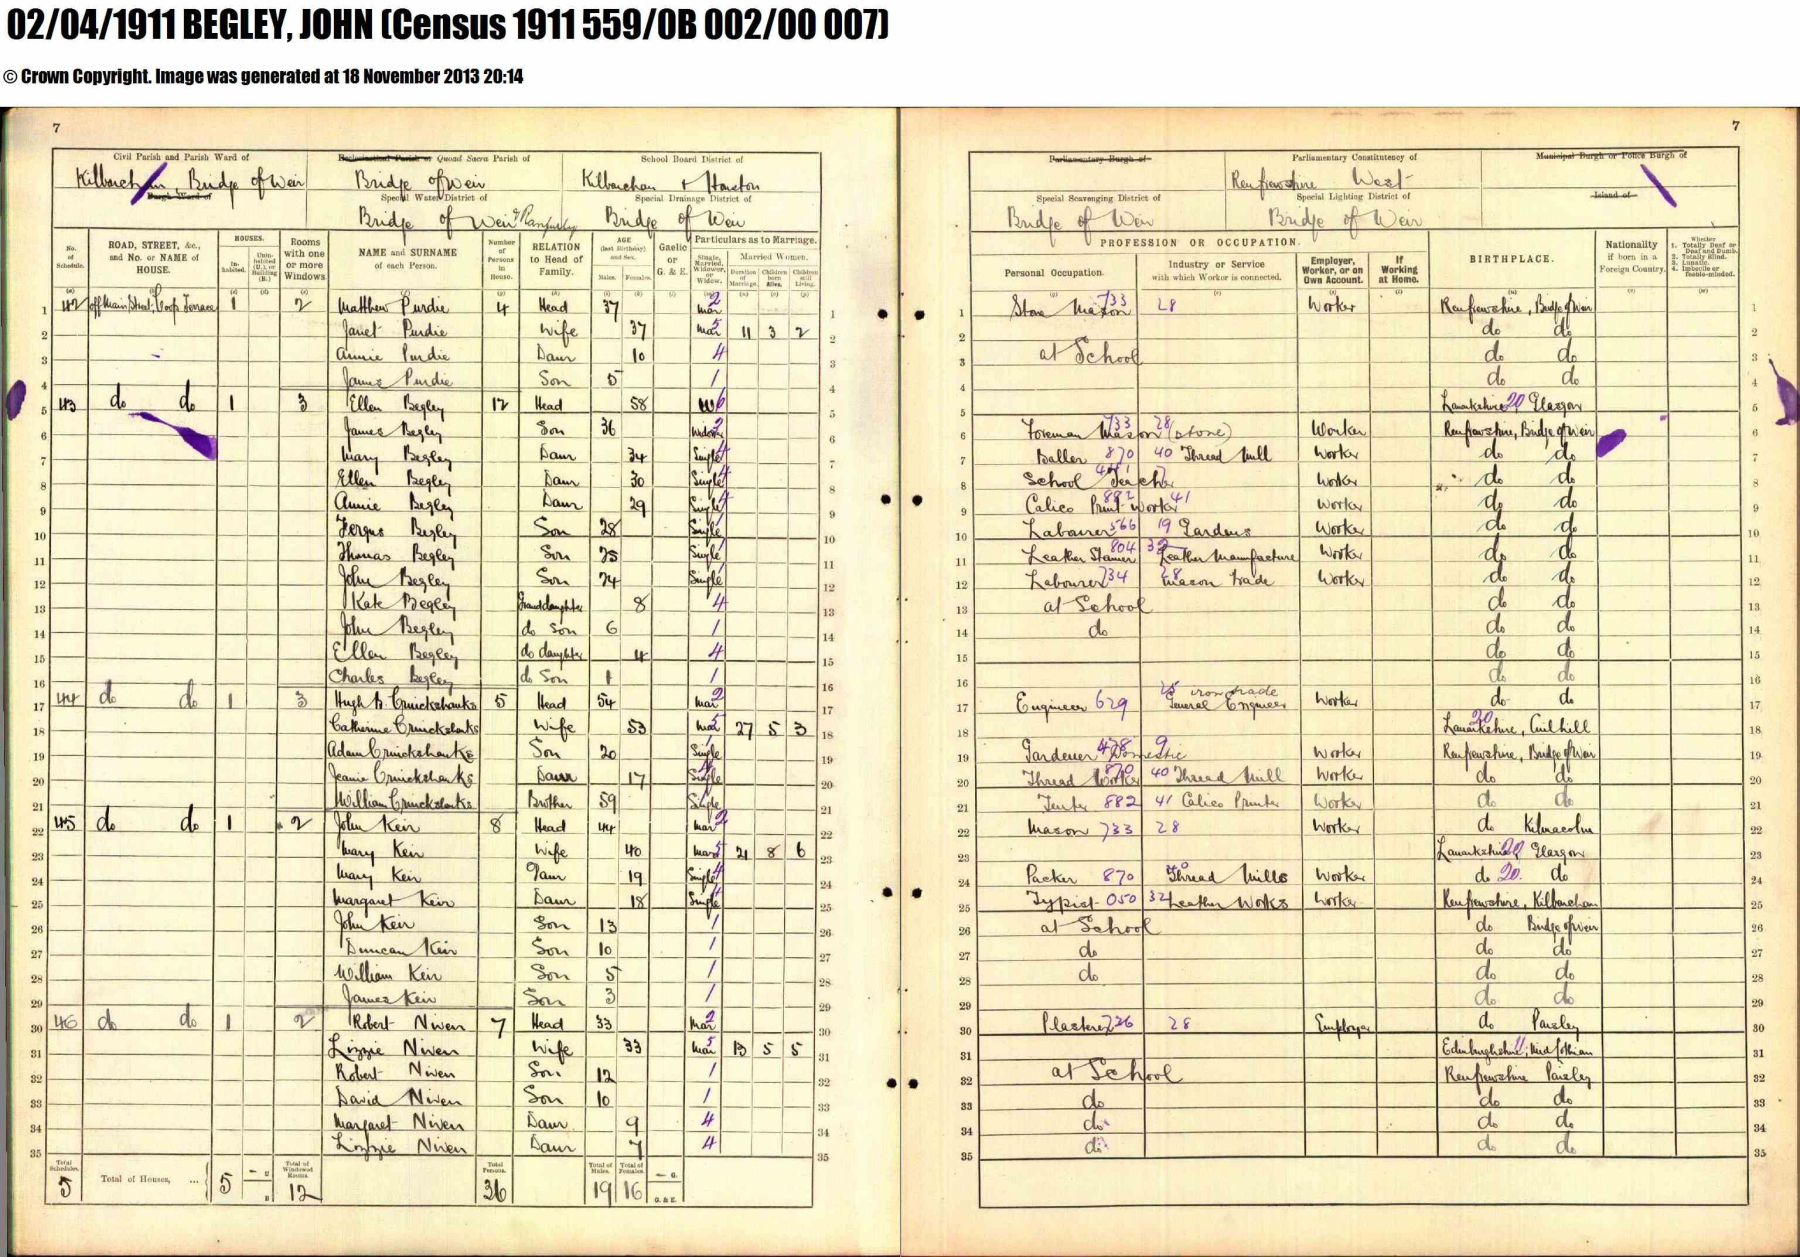 02/04/1911 BEGLEY, JOHN (Census 1911 559/0B 002/00 007)
© Crown Copyright. Image was generated at 18 November 2013 20:14
7
Civil Parish and Parish Ward of Ecclesiastical Parish or Quoad Sacra Parish of School Board District of
Kilbarchan, Bridge of Weir Bridge of Weir Kilbarchan & Houston
Burgh Ward of Special Water District of Special Drainage District of
Bridge of Weir & Ranfurly Bridge of Weir
No. of Schedule. ROAD, STREET, &c., and No. or NAME of HOUSE. HOUSES. Inhabited. Uninhabited (U.), or Building (B.) Rooms with one or more Windows. NAME and SURNAME of each Person. Number of Persons in House. RELATION to Head of Family. AGE (last Birthday) and Sex. Males. Females. Gaelic or G. & E. Particulars as to Marriage. Single, Married, Widower, or Widow. Married Women. Duration of Marriage. Children born Alive. Children still Living.
1 42 off Main Street, Coop Terrace 1 2 Matthew Purdie 4 Head 37 Mar 2 1
2 Janet Purdie Wife 37 Mar 5 11 3 2 2
3 Annie Purdie Daur 10 4 3
4 James Purdie Son 5 1 4
5 43 do do 1 3 Ellen Begley 12 Head 58 W 6 5
6 James Begley Son 36 Widower 2 6
7 Mary Begley Daur 34 Single 4 7
8 Ellen Begley Daur 30 Single 4 8
9 Annie Begley Daur 29 Single 4 9
10 Fergus Begley Son 28 Single 1 10
11 Thomas Begley Son 25 Single 1 11
12 John Begley Son 24 Single 1 12
13 Kate Begley Granddaughter 8 4 13
14 John Begley do Son 6 1 14
15 Ellen Begley do daughter 4 4 15
16 Charles Begley do Son 1 1 16
17 44 do do 1 3 Hugh Cruickshanks 5 Head 54 Mar 2 17
18 Catherine Cruickshanks Wife 53 Mar 5 27 5 3 18
19 Adam Cruickshanks Son 20 Single 1 19
20 Jeanie Cruickshanks Daur 17 Single 4 20
21 William Cruickshanks Brother 59 Single 1 21
22 45 do do 1 2 John Keir 8 Head 44 Mar 2 22
23 Mary Keir Wife 40 Mar 5 21 8 6 23
24 Mary Keir Daur 19 Single 4 24
25 Margaret Keir Daur 18 Single 4 25
26 John Keir Son 13 1 26
27 Duncan Keir Son 10 1 27
28 William Keir Son 5 1 28
29 James Keir Son 3 1 29
30 46 do do 1 2 Robert Niven 7 Head 33 Mar 2 30
31 Lizzie Niven Wife 33 Mar 5 13 5 5 31
32 Robert Niven Son 12 1 32
33 David Niven Son 10 1 33
34 Margaret Niven Daur 9 4 34
35 Lizzie Niven Daur 7 4 35
Total Schedules. 5 Total of Houses, ... 5 — U — B Total of Windowed Rooms 12 Total Persons. 36 Total of Males. 19 Total of Females. 16 — G. G. & E.
7
Parliamentary Burgh of Parliamentary Constituency of Municipal Burgh or Police Burgh of
Renfrewshire West
Special Scavenging District of Special Lighting District of Island of
Bridge of Weir Bridge of Weir
PROFESSION OR OCCUPATION. Personal Occupation. Industry or Service with which Worker is connected. Employer, Worker, or on Own Account. If Working at Home. BIRTHPLACE. Nationality if born in a Foreign Country. Whether 1. Totally Deaf or Deaf and Dumb. 2. Totally Blind. 3. Lunatic. 4. Imbecile or feeble-minded.
1 Stone Mason 733 28 Worker Renfrewshire, Bridge of Weir 1
2 do do 2
3 at School do do 3
4 do do 4
5 Lanarkshire 20 Glasgow 5
6 Foreman Mason 733 28 (stone) Worker Renfrewshire, Bridge of Weir 6
7 Baller 870 40 Thread Mill Worker do do 7
8 School Teacher Worker do do 8
9 Calico Print Worker 882 41 Worker do do 9
10 Labourer 566 19 Gardens Worker do do 10
11 Leather Stainer 804 32 Leather Manufacture Worker do do 11
12 Labourer 734 28 Mason Trade Worker do do 12
13 at School do do 13
14 do do do 14
15 do do 15
16 do do 16
17 Engineer 629 25 iron trade General Engineer Worker do do 17
18 Lanarkshire 20, 18
19 Gardener 478 9 Domestic Worker Renfrewshire, Bridge of Weir 19
20 Thread Worker 870 40 Thread Mill Worker do do 20
21 Tenter 882 41 Calico Printer Worker do do 21
22 Mason 733 28 Worker do Kilmacolm 22
23 Lanarkshire 20 Glasgow 23
24 Packer 870 40 Thread Mills Worker do 20 do 24
25 Typist 050 32 Leather Works Worker Renfrewshire, Kilbarchan 25
26 at School do Bridge of Weir 26
27 do do do 27
28 do do do 28
29 do do 29
30 Plasterer 736 28 Employer do Paisley 30
31 Edinburghshire 11, Mid Lothian 31
32 at School Renfrewshire Paisley 32
33 do do do 33
34 do do do 34
35 do do do 35